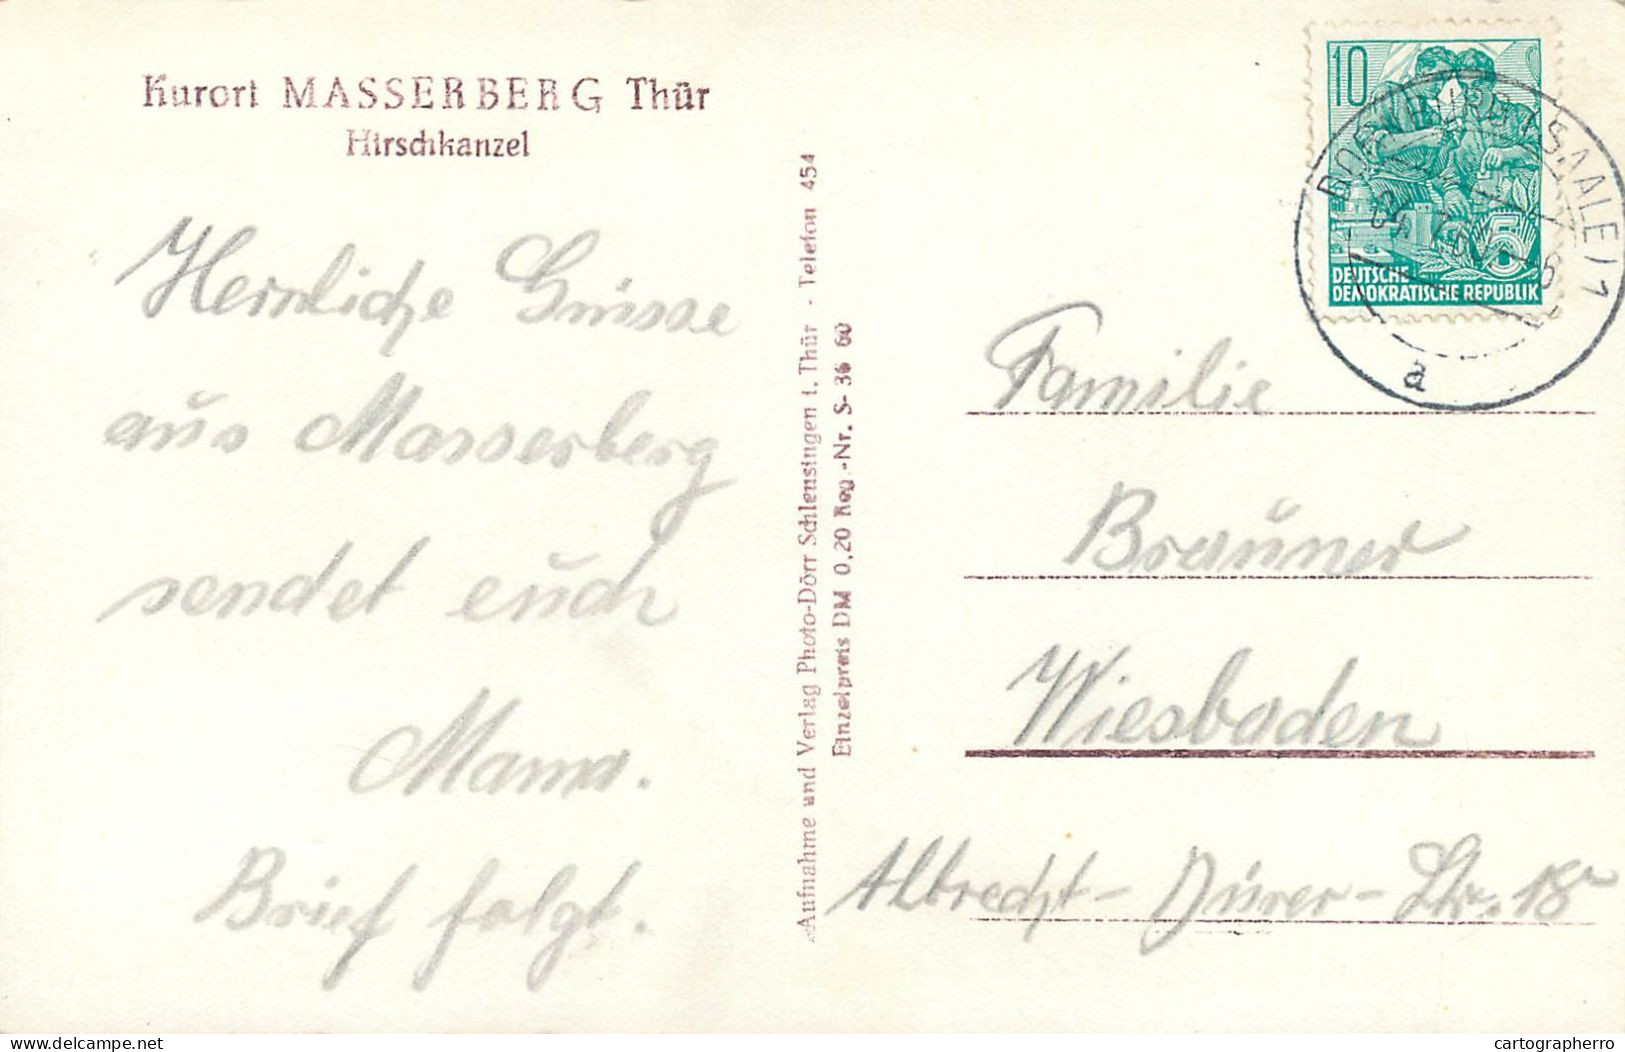 Kurort MASSERBERG Thür
Hirschkanzel
Herrliche Grüsse
aus Masserberg
sendet euch
Brief folgt.
Aufnahme und Verlag Photo-Dörr Schleusingen i. Thür - Telefon 454
Einzelpreis DM 0,20 Reg.-Nr. S- 36 60
10
5
DEUTSCHE
DEMOKRATISCHE REPUBLIK
(SAALE) 1
a
Familie
Brauner
Wiesbaden
Albrecht-Dürer-Str. 18
www.delcampe.net
cartographerro